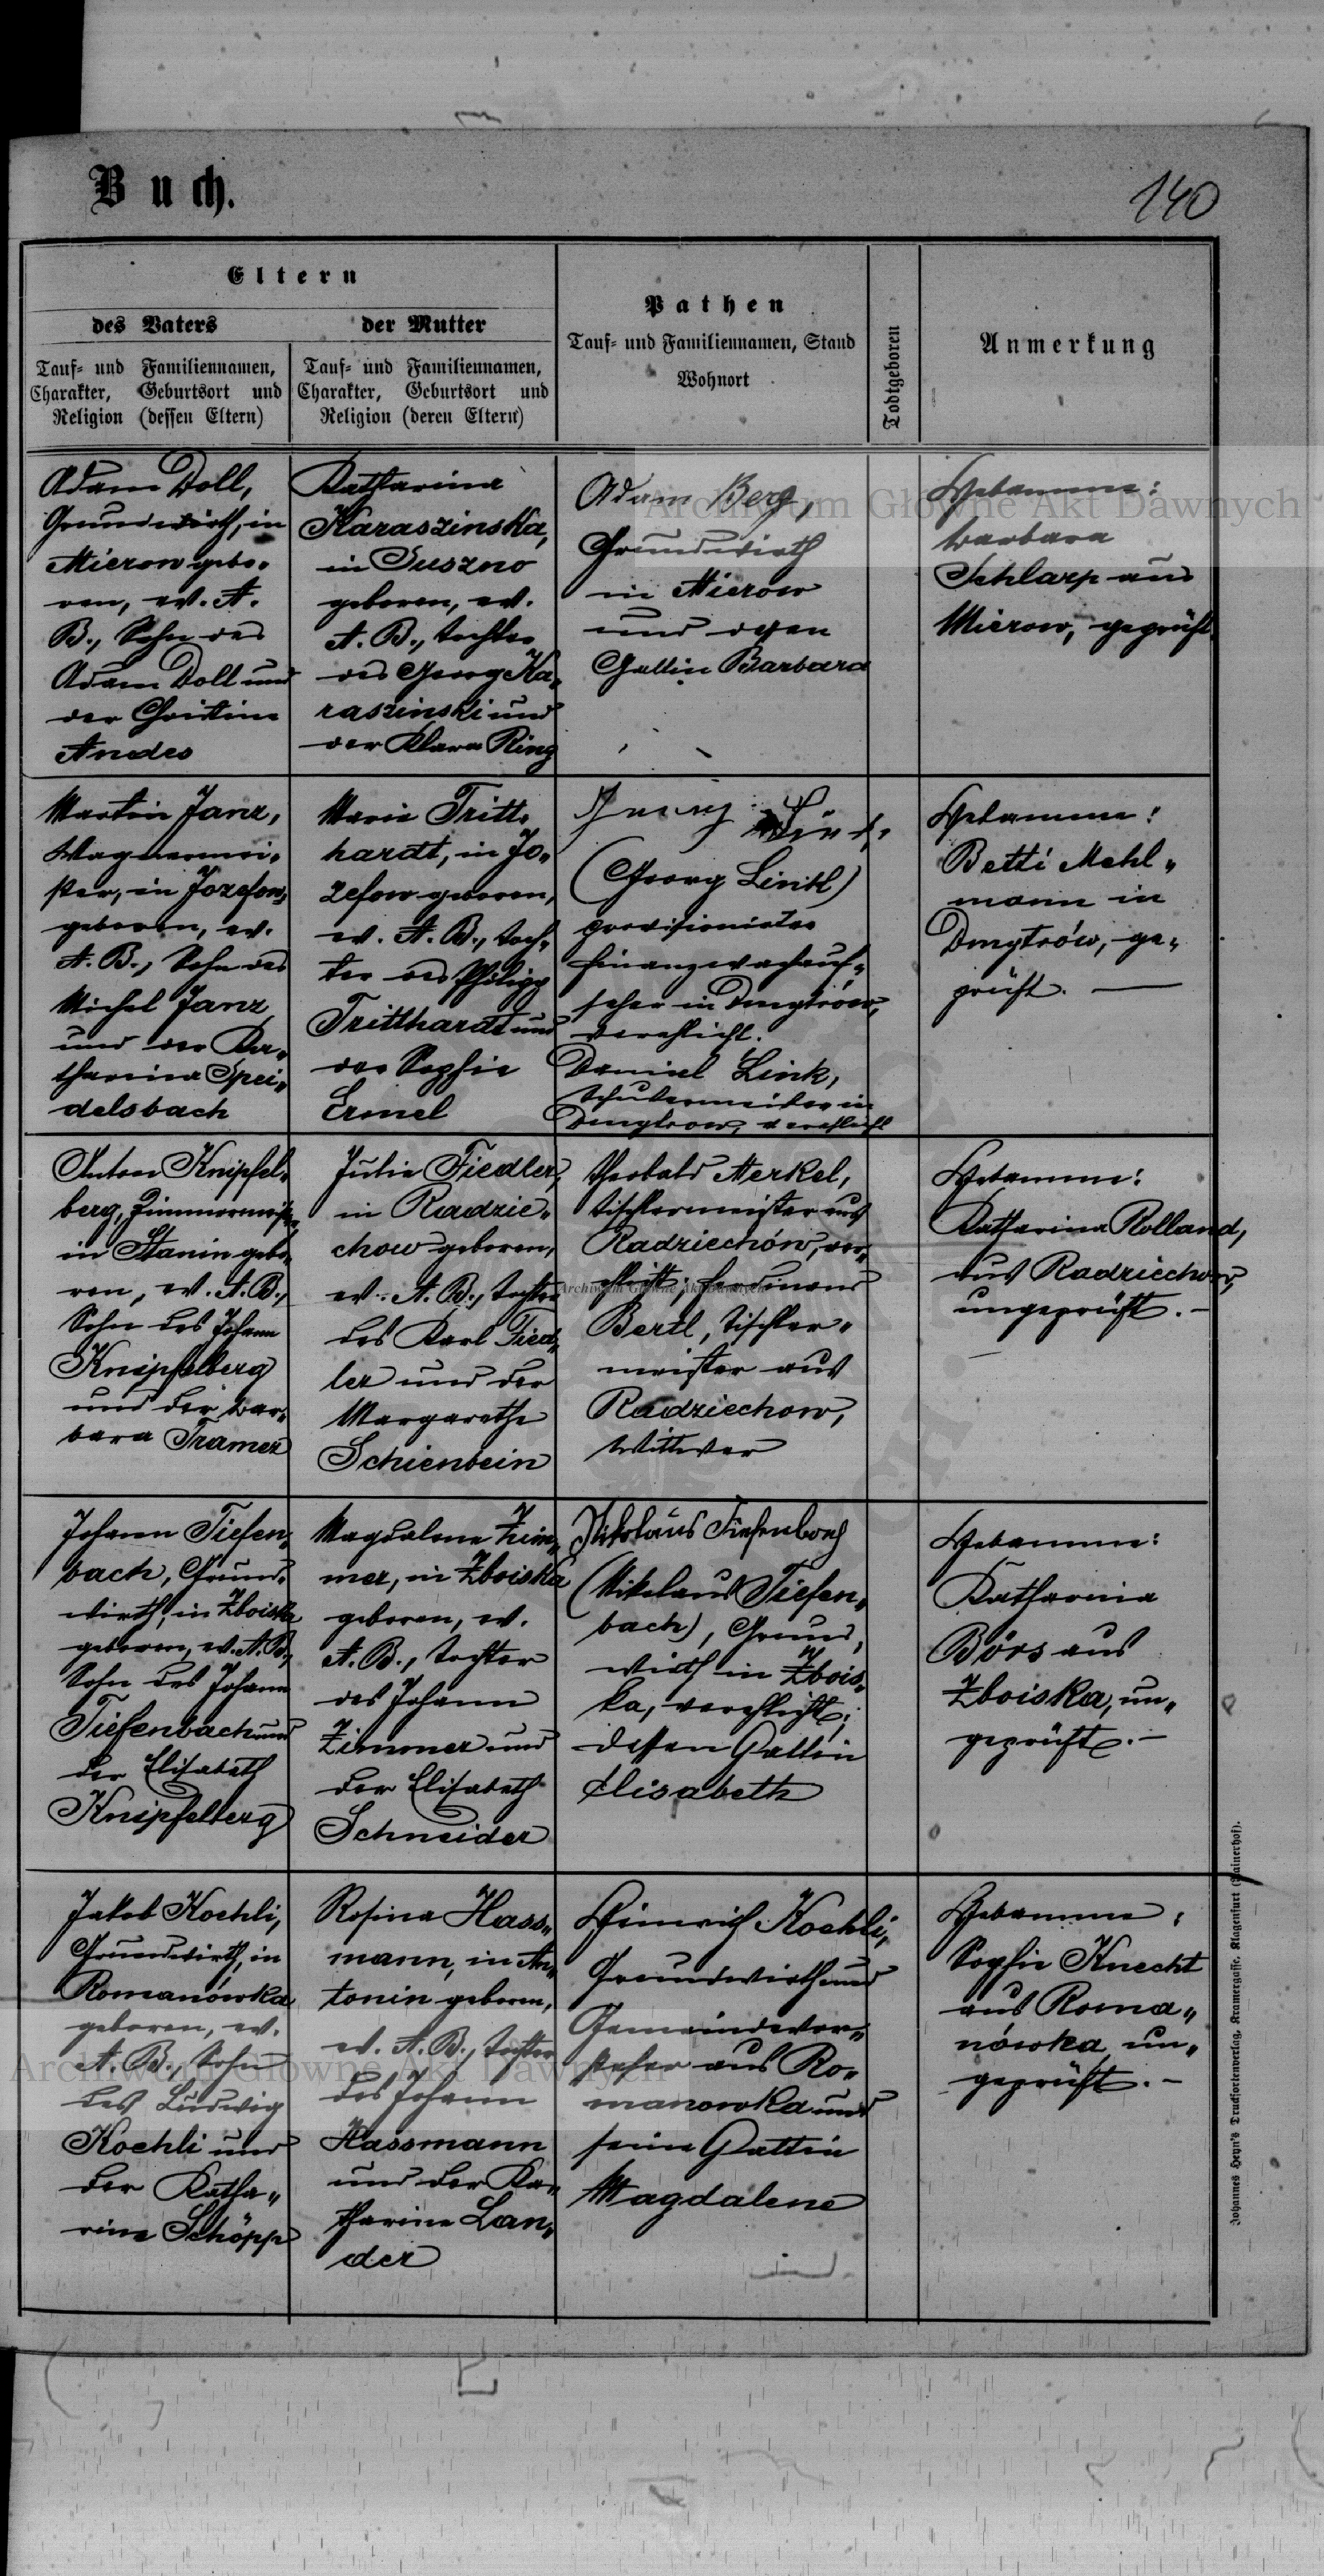 Buch.
140
Eltern
des Vaters
der Mutter
Tauf- und Familiennamen,
Charakter, Geburtsort und
Religion (dessen Eltern)
Tauf- und Familiennamen,
Charakter, Geburtsort und
Religion (deren Eltern)
Pathen
Tauf- und Familiennamen, Stand
Wohnort
Todtgeboren
Anmerkung
Adam Doll,
Grundwirth, in
Mierow gebo-
ren, ev. A.
B., Sohn des
Adam Doll und
der Christine
Andes
Katharina
Karaszinska,
in Suszno
geboren, ev.
A. B., Tochter
des Georg Ka-
raszinski und
der Klara Ring
Adam Berg,
Grundwirth
in Mierow
und dessen
Gattin Barbara
Hebamme:
Barbara
Schlarp aus
Mierow, geprüft
Martin Janz,
Wagnermei-
ster, in Józefow
geboren, ev.
A. B., Sohn des
Michel Janz
und der Ka-
tharina Spei-
delsbach
Marie Tritt-
hardt, in Jo-
zefow geboren,
ev. A. B., Toch-
ter des Philipp
Tritthardt und
der Sophie
Ermel
Georg
(Georg Lintl)
provisionirter
Finanzwachauf-
seher in Dmytrów,
verehlicht.
Daniel Link,
in
Dmytrow, verehlicht
Hebamme:
Betti Mehl-
mann in
Dmytrów, ge-
prüft. —
Anton Knipfel-
berg, Zimmermeister,
in Stanin gebo-
ren, ev. A. B.,
Sohn des Johann
Knipfelberg
und der Bar-
bara Tramer
Julie Fiedler,
in Radzie-
chow geboren,
ev. A. B., Tochter
des Karl Fied-
ler und der
Margarethe
Schienbein
Theobald Merkel,
Tischlermeister aus
Radziechów, ver-
ehlicht; Ferdinand
Bertl, Tischler-
meister aus
Radziechow,
Wittwer
Hebamme:
Katharina Rolland,
aus Radziechow,
ungeprüft. –
Johann Tiefen-
bach, Grund-
wirth, in Zboiska
geboren, ev. A. B.,
Sohn des Johann
Tiefenbach und
der Elisabeth
Knipfelberg
Magdalena Zim-
mer, in Zboiska
geboren, ev.
A. B., Tochter
des Johann
Zimmer und
der Elisabeth
Schneider
Nikolaus Tiefenbach
(Nikolaus Tiefen-
bach), Grund-
wirth in Zbois-
ka, verehlicht;
dessen Gattin
Elisabeth
Hebamme:
Katharina
Börs aus
Zboiska, un-
geprüft. –
Jakob Kochli,
Grundwirth, in
Romanówka
geboren, ev.
A. B., Sohn
des Ludwig
Kochli und
der Katha-
rine Schöpp
Rosina Hass-
mann, in An-
tonin geboren,
ev. A. B., Tochter
des Johann
Hassmann
und der Ka-
tharine Lan-
der
Heinrich Kochli,
Grundwirth und
Gemeindevor-
steher aus Ro-
manowka und
seine Gattin
Magdalene
Hebamme:
Sophie Knecht
aus Roma-
nówka, un-
geprüft. –
Johannes Heyn's Drucksortenverlag, Kramergasse, Klagenfurt
Archiwum Główne Akt Dawnych
Archiwum Główne Akt Dawnych
Archiwum Główne Akt Dawnych